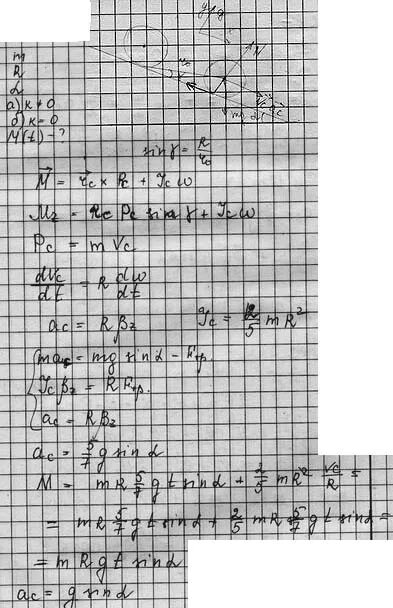 m
R
α
а) k ≠ 0
б) k = 0
M(t) - ?
sin γ = R/r₀
M⃗ = r⃗c × Pc + Jc ω
Mz = rc Pc sin γ + Jc ω
Pc = m Vc
dVc/dt = R dω/dt
ac = R βz
Jc = 2/5 m R²
mac = mg sin α - Fтр.
Jc βz = R Fтр.
ac = R βz
ac = 5/7 g sin α
M = mR 5/7 g t sin α + 2/5 mR² Vc/R =
= mR 5/7 g t sin α + 2/5 mR 5/7 g t sin α =
= m R g t sin α
ac = g sin α